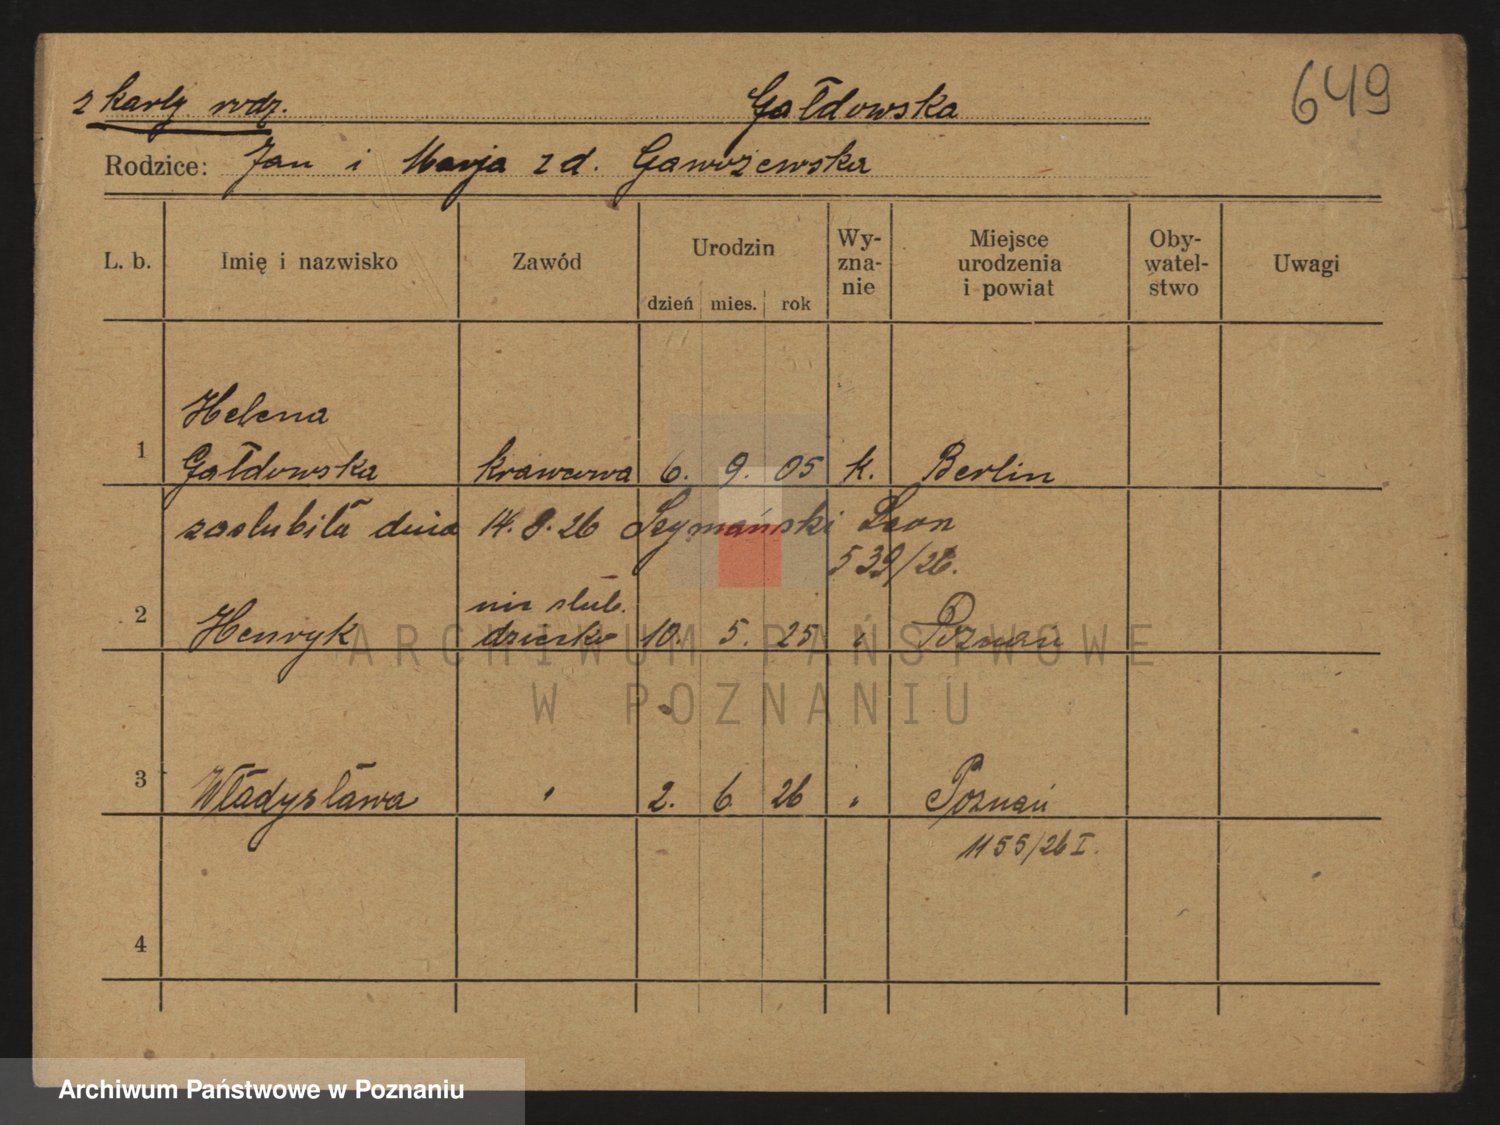 649
z karty rodz. Gałdowska
Rodzice: Jan i Marja z d. Gaworzewska
L. b. Imię i nazwisko Zawód Urodzin dzień mies. rok Wy-zna-nie Miejsce urodzenia i powiat Oby-watel-stwo Uwagi
Helena
1 Gałdowska krawcowa 6. 9. 05 k. Berlin
zaślubiła dnia 14. 8. 26 Szymański Leon
539/26.
nie ślub.
2 Henryk dziecko 10. 5. 25 " Poznań
ARCHIWUM PAŃSTWOWE
W POZNANIU
3 Władysława " 2. 6 26 " Poznań
1155/26 I.
4
Archiwum Państwowe w Poznaniu